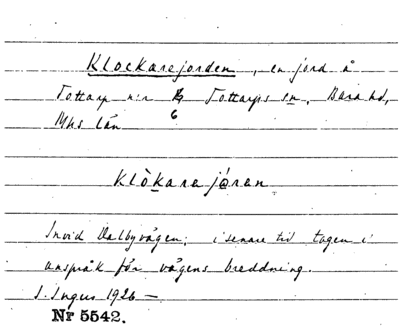 Klockarejorden, en jord å
Tottarp n:r 6 Tottarps sn, Bara hd,
Mhs län
Klòkarejóren
Invid Dalbyvägen; i senare tid tagen i
anspråk för vägens breddning.
I. Ingers 1926 —
Nr 5542.